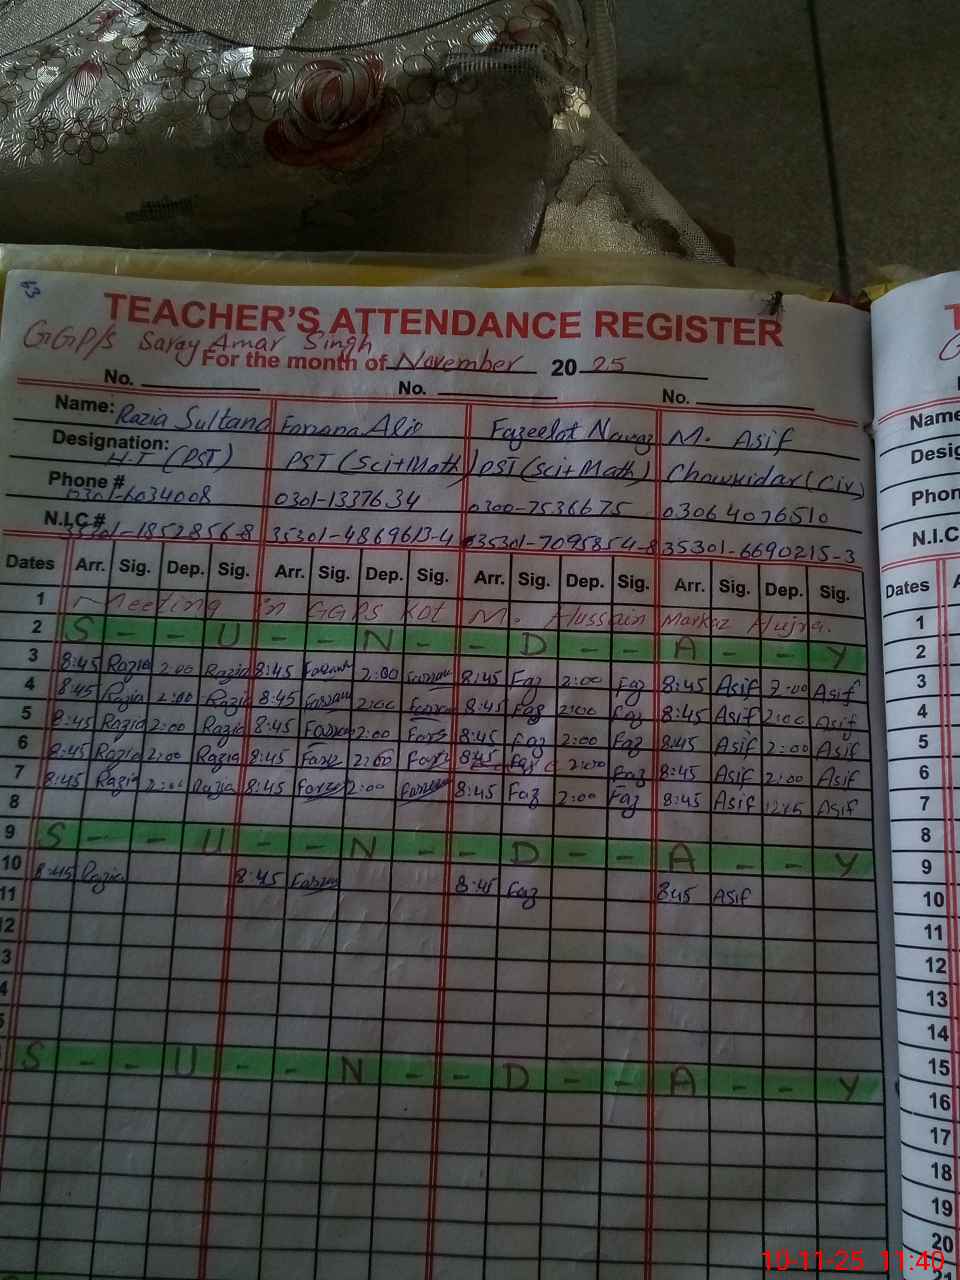 TEACHER'S ATTENDANCE REGISTER
GGP/S Saray Amar Singh
For the month of November 2025
No. No. No.
Name: Razia Sultana Farzana Fazeelat Nawaz M. Asif
Designation: H.T (PST) PST (Sci+Math) PST (Sci+Math) Chowkidar (Civ)
Phone # 0301-6034008 0301-1337634 0300-7536675 03064076510
N.I.C # 35301-1852856-8 35301-4869613-4 35301-7095854-8 35301-6690215-3
Dates Arr. Sig. Dep. Sig. Arr. Sig. Dep. Sig. Arr. Sig. Dep. Sig. Arr. Sig. Dep. Sig.
1 Meeting in GGPS Kot M. Hussain Markaz Hujra.
2 S - - U - - N - - D - - A - - Y
3 8:45 Razia 2:00 Razia 8:45 Farzana 2:00 Farzana 8:45 Faz 2:00 Faz 8:45 Asif 2:00 Asif
4 8:45 Razia 2:00 Razia 8:45 Farzana 2:00 8:45 Faz 2:00 Faz 8:45 Asif 2:00 Asif
5 8:45 Razia 2:00 Razia 8:45 2:00 8:45 Faz 2:00 Faz 8:45 Asif 2:00 Asif
6 8:45 Razia 2:00 Razia 8:45 2:00 8:45 2:00 Faz 8:45 Asif 2:00 Asif
7 8:45 Razia 2:00 Razia 8:45 2:00 8:45 Faz 2:00 Faz 8:45 Asif Asif
8
9 S - - U - - N - - D - - A - - Y
10 8:45 Razia 8:45 Farzana 8:45 Faz 8:45 Asif
11
12
3
4
5
S - - U - - N - - D - - A - - Y
T
G
Name
Desig
Phon
N.I.C
Dates A
1
2
3
4
5
6
7
8
9
10
11
12
13
14
15
16
17
18
19
20
21
10-11-25 11:40